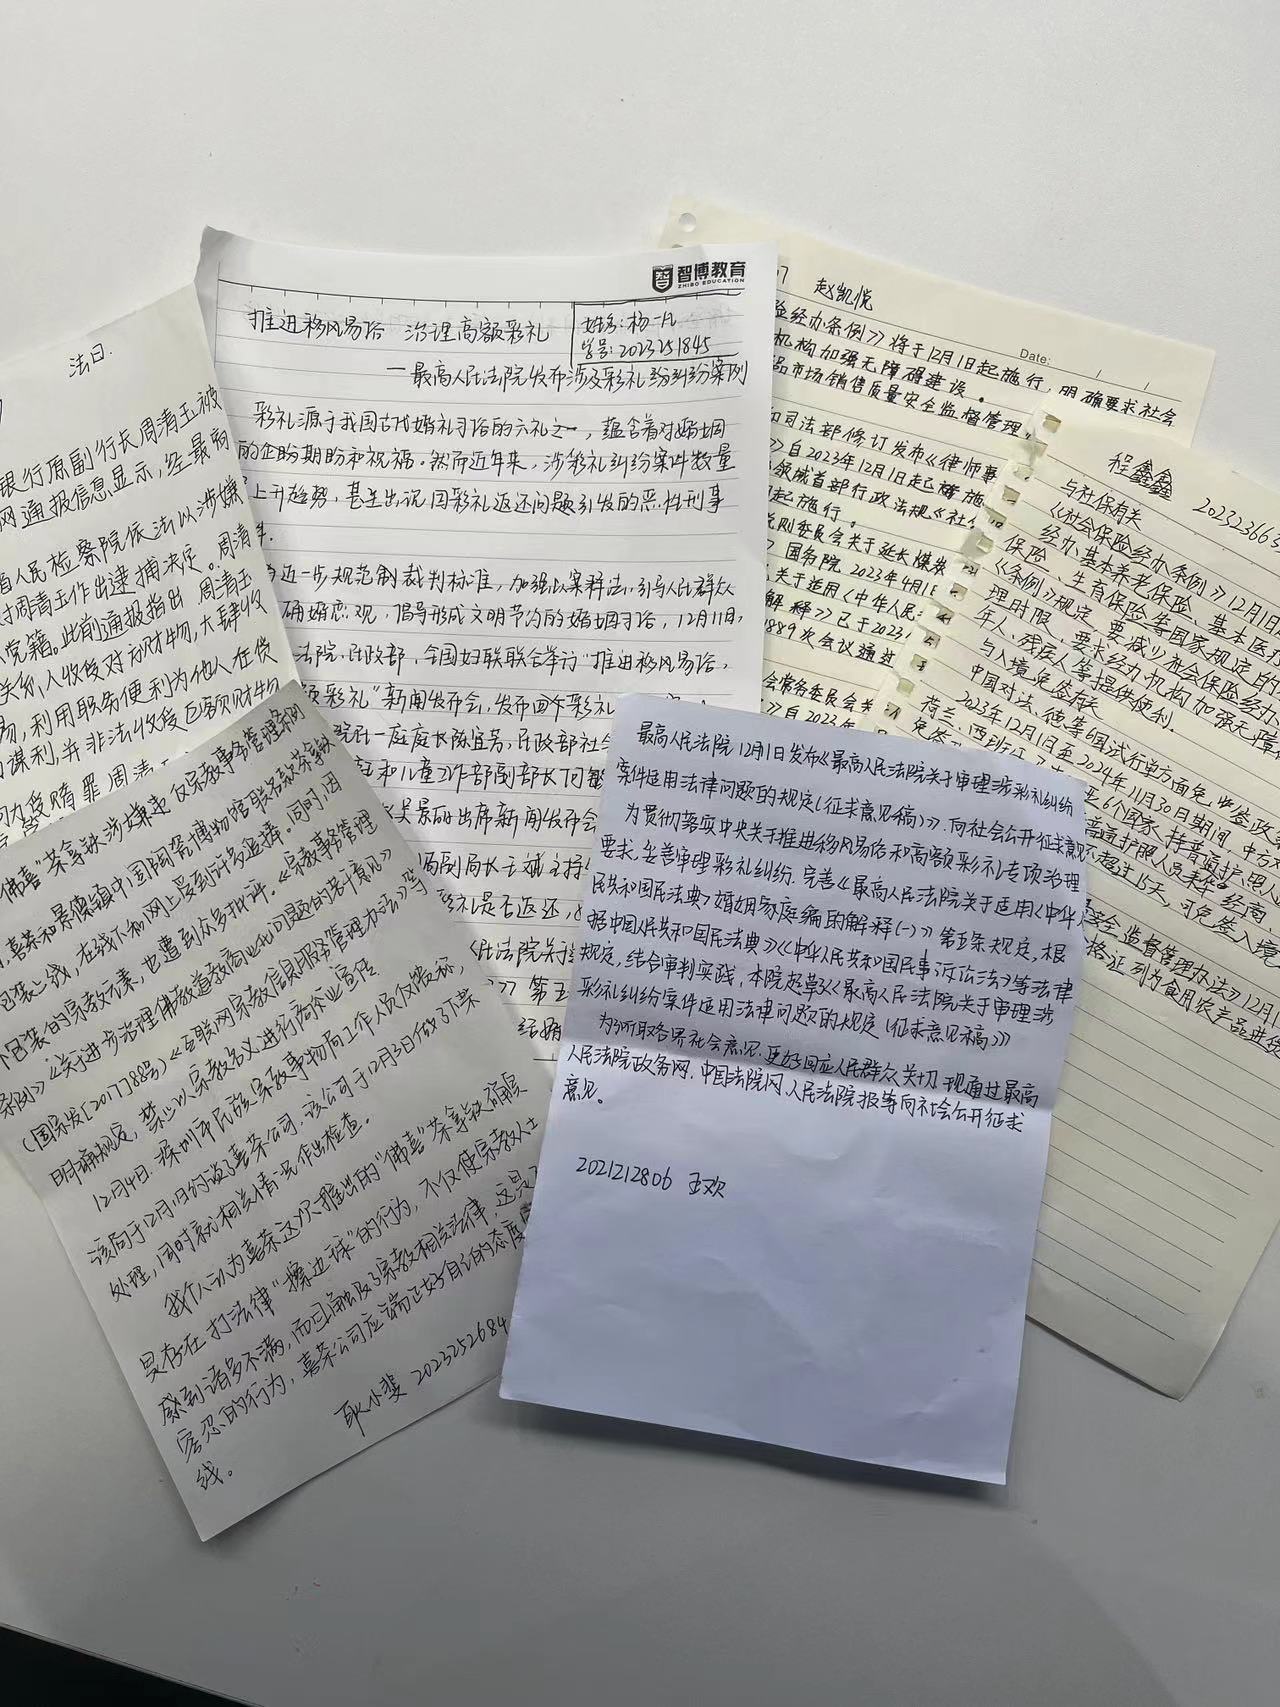 法日.
银行原副行长周清玉被
网通报信息显示,经最高
省人民检察院依法以涉嫌
对周清玉作出逮捕决定。周清玉
党籍。此前通报指出 周清玉
关系人收受对方财物,大肆收
易,利用职务便利为他人在贷
谋利,并非法收受巨额财物
智博教育
ZHIBO EDUCATION
推进移风易俗 治理高额彩礼
姓名:杨一凡
学号:2023251845
—最高人民法院发布涉及彩礼纠纷案例
彩礼源于我国古代婚礼习俗的六礼之一,蕴含着对婚姻
的企盼期盼和祝福。然而近年来,涉彩礼纠纷案件数量
上升趋势,甚至出现因彩礼返还问题引发的恶性刑事
进一步规范制裁判标准,加强以案释法,引导人民群众
确婚恋观,倡导形成文明节约的婚姻习俗,12月11日,
法院、民政部、全国妇联联合举行"推进移风易俗,
额彩礼"新闻发布会,发布四个彩礼
院民一庭庭长陈宜芳,民政部社会
吴景丽出席新闻发布会
局副局长王斌主持
彩礼是否返还,
赵凯悦
Date:
险经办条例》将于12月1日起施行,明确要求社会
机构加强无障碍建设。
品市场销售质量安全监督管理
和司法部修订发布《律师事
》自2023年12月1日起施
领域首部行政法规《社
起施行。
税则委员会关于延长煤炭
国务院2023年4月1
关于适用《中华人民
解释》已于2023
889次会议通过
会常务委员会
》自2023年
程鑫鑫
与社保有关
《社会保险经办条例》12月1日
经办基本养老保险、基本医疗
保险、生育保险等国家规定的
《条例》规定,要减少社会保险经办
理时限、要求经办机构加强无障
年人、残疾人等提供便利.
与入境免签有关
中国对法、德等6国试行单方面免签政策
2023年12月1日至2024年11月30日期间,中方对
6个国家持普通护照人
普通护照人员来华经商、
不超过15天,可免签入境
安全监督管理办法》12月1
格证列为食用农产品进货
"佛喜"茶拿铁涉嫌违反宗教事务管理条例
喜茶和景德镇中国陶瓷博物馆联名款茶拿铁
包装上线,在线下和网上受到许多追捧。同时,因
包装的宗教元素,也遭到众多批评。《宗教事务管理
条例》《关于进一步治理佛教道教商业化问题的若干意见》
(国宗发[2017]88号)《互联网宗教信息服务管理办法》等
明确规定,禁止以宗教名义进行商业宣传
12月4日,深圳市民族宗教事务局工作人员仅微称,
该局于12月1日约谈了喜茶公司,该公司于12月3日做了下架
处理,同时就相关情况作出检查。
我个人认为喜茶这次推出的"佛喜"茶拿铁确实
是存在打法律"擦边球"的行为,不仅使宗教人士
感到诸多不满,而且触及了宗教相关法律,这是
容忍的行为,喜茶公司应端正好自己的态度
线。
耿小斐 2023252684
最高人民法院12月1日发布《最高人民法院关于审理涉彩礼纠纷
案件适用法律问题的规定(征求意见稿)》,向社会公开征求意见
为贯彻落实中央关于推进移风易俗和高额彩礼专项治理
要求,妥善审理彩礼纠纷,完善《最高人民法院关于适用《中华人
民共和国民法典》婚姻家庭编的解释(一)》第五条规定,根
据中国人民共和国民法典》《中华人民共和国民事诉讼法》等法律
规定,结合审判实践,本院起草了《最高人民法院关于审理涉
彩礼纠纷案件适用法律问题的规定(征求意见稿)》
为听取各界社会意见,更好回应人民群众关切,现通过最高
人民法院政务网、中国法院网、人民法院报等向社会公开征求
意见。
2021212806 王欢